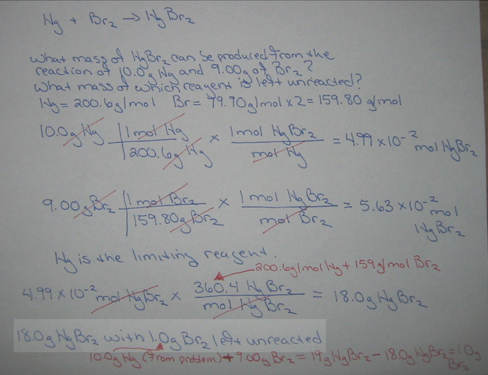 Hg + Br₂ → HgBr₂
What mass of HgBr₂ can be produced from the
reaction of 10.0g Hg and 9.00g of Br₂?
What mass of which reagent is left unreacted?
Hg = 200.6g/mol Br = 79.90g/mol x 2 = 159.80 g/mol
10.0g Hg | 1 mol Hg / 200.6g Hg x 1 mol HgBr₂ / mol Hg = 4.99 x 10⁻² mol HgBr₂
9.00g Br₂ | 1 mol Br₂ / 159.80g Br₂ x 1 mol HgBr₂ / mol Br₂ = 5.63 x 10⁻² mol
HgBr₂
Hg is the limiting reagent.
200.6g/mol Hg + 159g/mol Br₂
4.99 x 10⁻² mol HgBr₂ x 360.4 HgBr₂ / mol HgBr₂ = 18.0g HgBr₂
18.0g HgBr₂ with 1.0g Br₂ left unreacted
10.0g Hg (from problem) + 9.00g Br₂ = 19g HgBr₂ - 18.0g HgBr₂ = 1.0g
Br₂